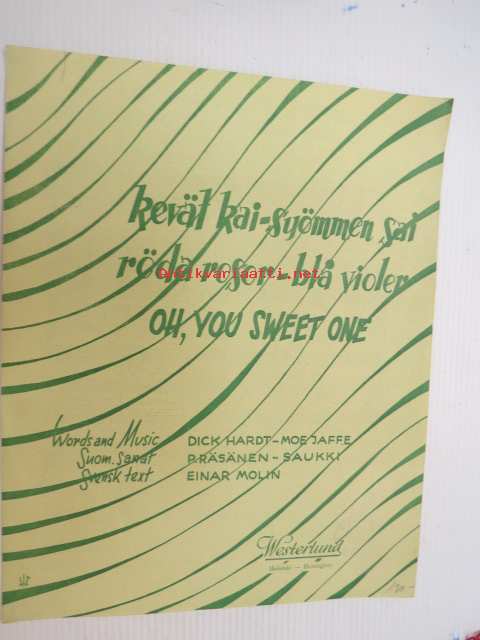 kevät kai-syömmen sai
röda rosor - blå violer
Antikvariaatti.net
OH, YOU SWEET ONE
Words and Music DICK HARDT - MOE JAFFE
Suom. sanat P. RÄSÄNEN - SAUKKI
Svensk text EINAR MOLIN
Westerlund
Helsinki — Helsingfors